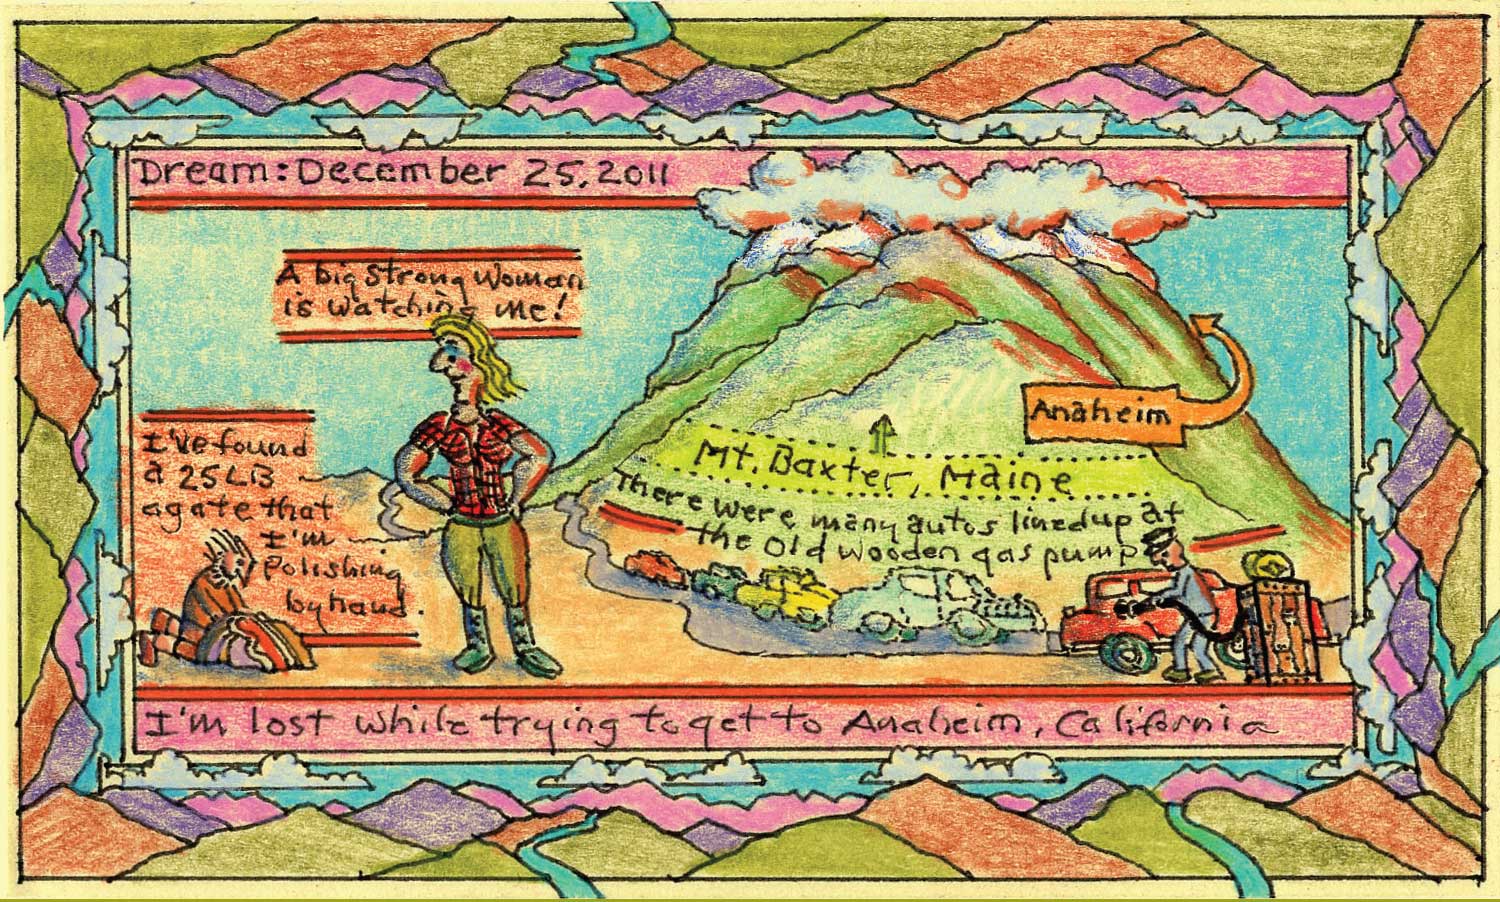 Dream: December 25, 2011
A big strong woman
is watching me!
I've found
a 25 LB
agate that
I'm
polishing
by hand.
Anaheim
Mt. Baxter, Maine
There were many autos lined up at
the old wooden gas pump
I'm lost while trying to get to Anaheim, California